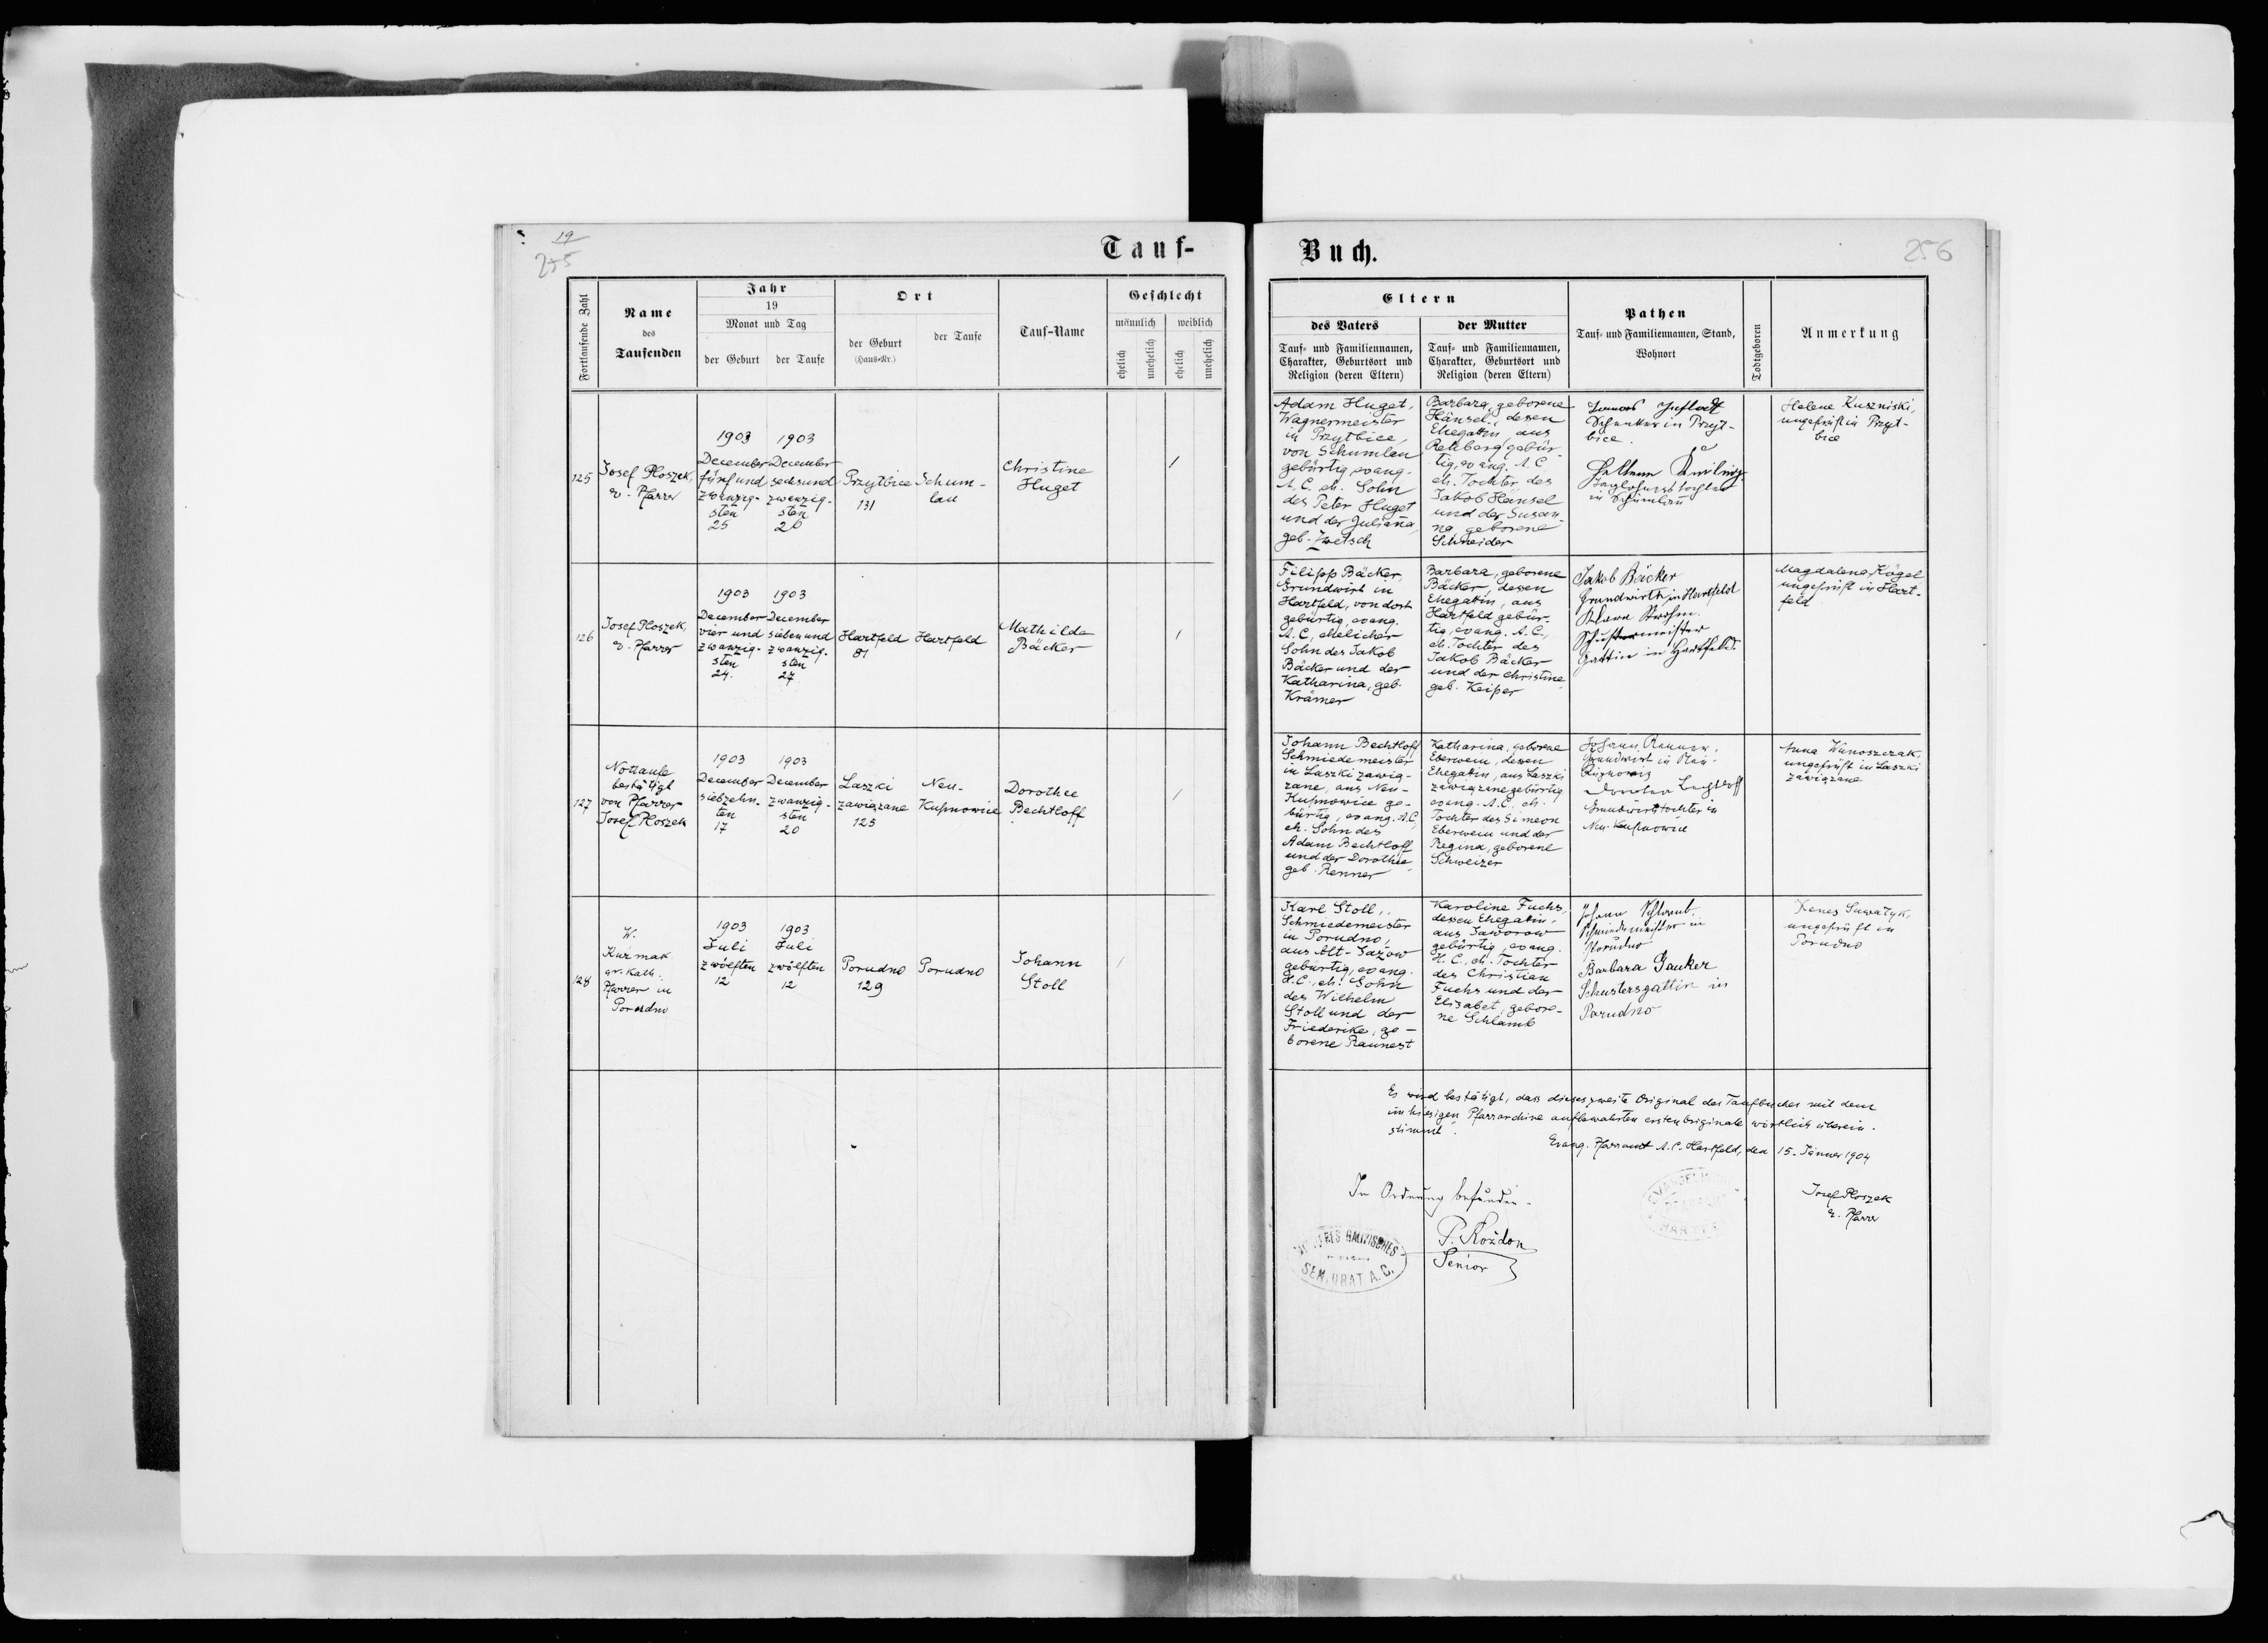 19
255
Tauf-
Fortlaufende Zahl
Name
des
Taufenden
Jahr
19
Monat und Tag
der Geburt
der Taufe
Ort
der Geburt
(Haus-Nr.)
der Taufe
Tauf-Name
Geschlecht
männlich
weiblich
ehelich
unehelich
ehelich
unehelich
125
Josef Ploszek,
ev. Pfarrer
1903
December
fünf und
zwanzig-
sten
25
1903
December
sechs und
zwanzig-
sten
26
Przytbice
131
Schum-
lau
Christine
Huget
/
126
Josef Ploszek,
ev. Pfarrer
1903
December
vier und
zwanzig-
sten
24.
1903
December
sieben und
zwanzig-
sten
27
Hartfeld
81
Hartfeld
Mathilde
Bäcker
/
127
Nottaufe
bestätigt
von Pfarrer
Josef Ploszek
1903
December
siebzehn-
ten
17
1903
December
zwanzig-
sten
20
Laszki
zawiązane
125
Neu-
Kupnowice
Dorothee
Bechtloff
/
128
W.
Kuźmak
gr. kath.
Pfarrer in
Porudno
1903
Juli
zwölften
12
1903
Juli
zwölften
12
Porudno
129
Porudno
Johann
Stoll
/
Buch.
256
Eltern
des Vaters
Tauf- und Familiennamen,
Charakter, Geburtsort und
Religion (deren Eltern)
der Mutter
Tauf- und Familiennamen,
Charakter, Geburtsort und
Religion (deren Eltern)
Pathen
Tauf- und Familiennamen, Stand,
Wohnort
Todtgeboren
Anmerkung
Adam Huget,
Wagnermeister
in Przytbice,
von Schumlau
gebürtig, evang.
A. C. eh. Sohn
des Peter Huget
und der Juliana,
geb. Zwetsch
Barbara, geborene
Hänsel, dessen
Ehegattin, aus
Rehberg gebür-
tig, evang. A. C.
eh. Tochter des
Jakob Hänsel
und der Susan-
na geborene
Schneider
in Przyt-
bice.
in Schumlau
Helene Kuszniski,
ungeprüft in Przyt-
bice
Filipp Bäcker,
Grundwirt in
Hartfeld, von dort
gebürtig, evang.
A. C., ehelicher
Sohn des Jakob
Bäcker und der
Katharina, geb.
Krämer
Barbara, geborene
Bäcker, dessen
Ehegattin, aus
Hartfeld gebür-
tig, evang. A. C.,
eh. Tochter des
Jakob Bäcker
und der Christine
geb. Keiper
Jakob Bäcker
Grundwirth in Hartfeld
Schustermeister
Gattin in Hartfeld.
Magdalena Kögel
ungeprüft in Hart-
feld
Johann Bechtloff
Schmiedemeister
in Laszki zawią-
zane, aus Neu-
Kupnowice ge-
bürtig, evang. A. C.
eh. Sohn des
Adam Bechtloff
und der Dorothee
geb. Renner
Katharina, geborene
Eberwein, dessen
Ehegattin, aus Laszki
zawiązane gebürtig
evang. A. C. eh.
Tochter des Simeon
Eberwein und der
Regina, geborene
Schweizer
Johann Renner.
Grundwirt in Neu-
Grundwirtstochter in
Neu-Kupnowice
Anna
ungeprüft in Laszki
zawiązane
Karl Stoll,
Schmiedemeister
in Porudno,
aus Alt-Jazow
gebürtig, evang.
H. C., eh. Sohn
des Wilhelm
Stoll und der
Friederike, ge-
borene Raunest
Karoline Fuchs,
dessen Ehegattin,
aus Jaworow
gebürtig, evang.
H. C., eh. Tochter
des Christian
Fuchs und der
Elisabet, gebore-
ne Schlamb
Johann Schlamb,
Schmiedemeister in
Porudno
Barbara Gauker
Schustersgattin in
Porudno
Suwałyk,
ungeprüft in
Porudno
Es wird bestätigt, dass dieses zweite Original des Taufbuches mit dem
im hiesigen Pfarrarchive aufbewahrten ersten Originale wörtlich überein-
stimmt.
Evang. Pfarramt A. C. Hartfeld, den 15. Jänner 1904
In Ordnung befunden.
P. Kożdon
Senior
Josef Ploszek
ev. Pfarrer
SENIORAT A. C.